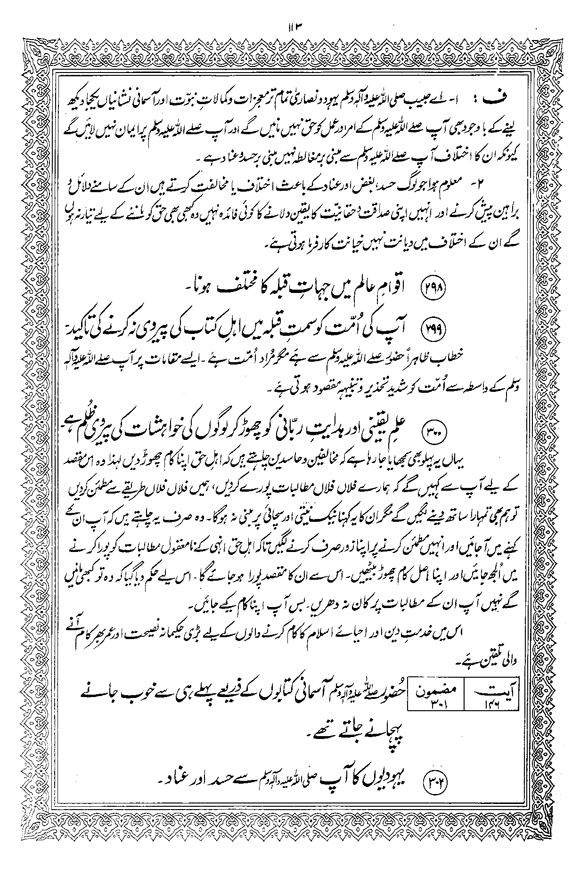 ۱۱۳
ف : ۱- اے حبیب صلی اللہ علیہ وآلہ وسلم یہود و نصاریٰ تمام تر معجزات و کمالاتِ نبوّت اور آسمانی نشانیاں یکجا دیکھ
لینے کے باوجود بھی آپ صلے اللہ علیہ وسلم کے امر اور عمل کو حق نہیں مانیں گے اور آپ صلے اللہ علیہ وسلم پر ایمان نہیں لائیں گے
کیونکہ ان کا اختلاف آپ صلے اللہ علیہ وسلم سے مبنی بر مغالطہ نہیں مبنی بر حسد و عناد ہے۔
۲- معلوم ہوا جو لوگ حسد، بغض اور عناد کے باعث اختلاف یا مخالفت کرتے ہیں ان کے سامنے دلائل و
براہین پیش کرنے اور انہیں اپنی صداقت و حقانیت کا یقین دلانے کا کوئی فائدہ نہیں وہ کبھی بھی حق کو ماننے کے لیے تیار نہ ہوں
گے ان کے اختلاف میں دیانت نہیں خیانت کارفرما ہوتی ہے۔
۲۹۸ اقوامِ عالم میں جہاتِ قبلہ کا مختلف ہونا۔
۲۹۹ آپ کی اُمّت کو سمتِ قبلہ میں اہلِ کتاب کی پیروی نہ کرنے کی تاکید۔
خطاب ظاہراً حضور صلے اللہ علیہ وسلم سے ہے مگر مُراد اُمّت ہے۔ ایسے مقامات پر آپ صلی اللہ علیہ وآلہ
وسلم کے واسطہ سے اُمّت کو شدید تحذیر و تنبیہہ مقصود ہوتی ہے۔
۳۰۰ علمِ یقینی اور ہدایتِ ربّانی کو چھوڑ کر لوگوں کی خواہشات کی پیروی ظُلم ہے
یہاں یہ پہلو بھی سمجھایا جا رہا ہے کہ مخالفین و حاسدین چاہتے ہیں کہ اہلِ حق اپنا کام چھوڑ دیں لہٰذا وہ اس مقصد
کے لیے آپ سے کہیں گے کہ ہمارے فلاں فلاں مطالبات پورے کر دیں، ہمیں فلاں فلاں طریقے سے مطمئن کر دیں
تو ہم بھی تمہارا ساتھ دینے لگیں گے مگر ان کا یہ کہنا نیک نیتی اور سچائی پر مبنی نہ ہوگا۔ وہ صرف یہ چاہتے ہیں کہ آپ ان کے
کہنے میں آ جائیں اور انہیں مطمئن کرنے پر اپنا زور صرف کرنے لگیں تاکہ اہلِ حق انہی کے نامعقول مطالبات کو پورا کرنے
میں اُلجھ جائیں اور اپنا اصل کام چھوڑ بیٹھیں۔ اس سے ان کا مقصد پورا ہو جائے گا۔ اس لیے حکم دیا گیا کہ وہ تو کبھی مانیں
گے نہیں آپ ان کے مطالبات پر کان نہ دھریں۔ بس آپ اپنا کام کیے جائیں۔
اس میں خدمتِ دین اور احیائے اسلام کا کام کرنے والوں کے لیے بڑی حکیمانہ نصیحت اور عمر بھر کام آنے
والی تلقین ہے۔
آیت ۱۴۶ مضمون ۳۰۱ حُضور صلی اللہ علیہ وآلہ وسلم آسمانی کتابوں کے ذریعے پہلے ہی سے خوب جانے
پہچانے جاتے تھے۔
۳۰۲ یہودیوں کا آپ صلی اللہ علیہ وآلہ وسلم سے حسد اور عناد۔